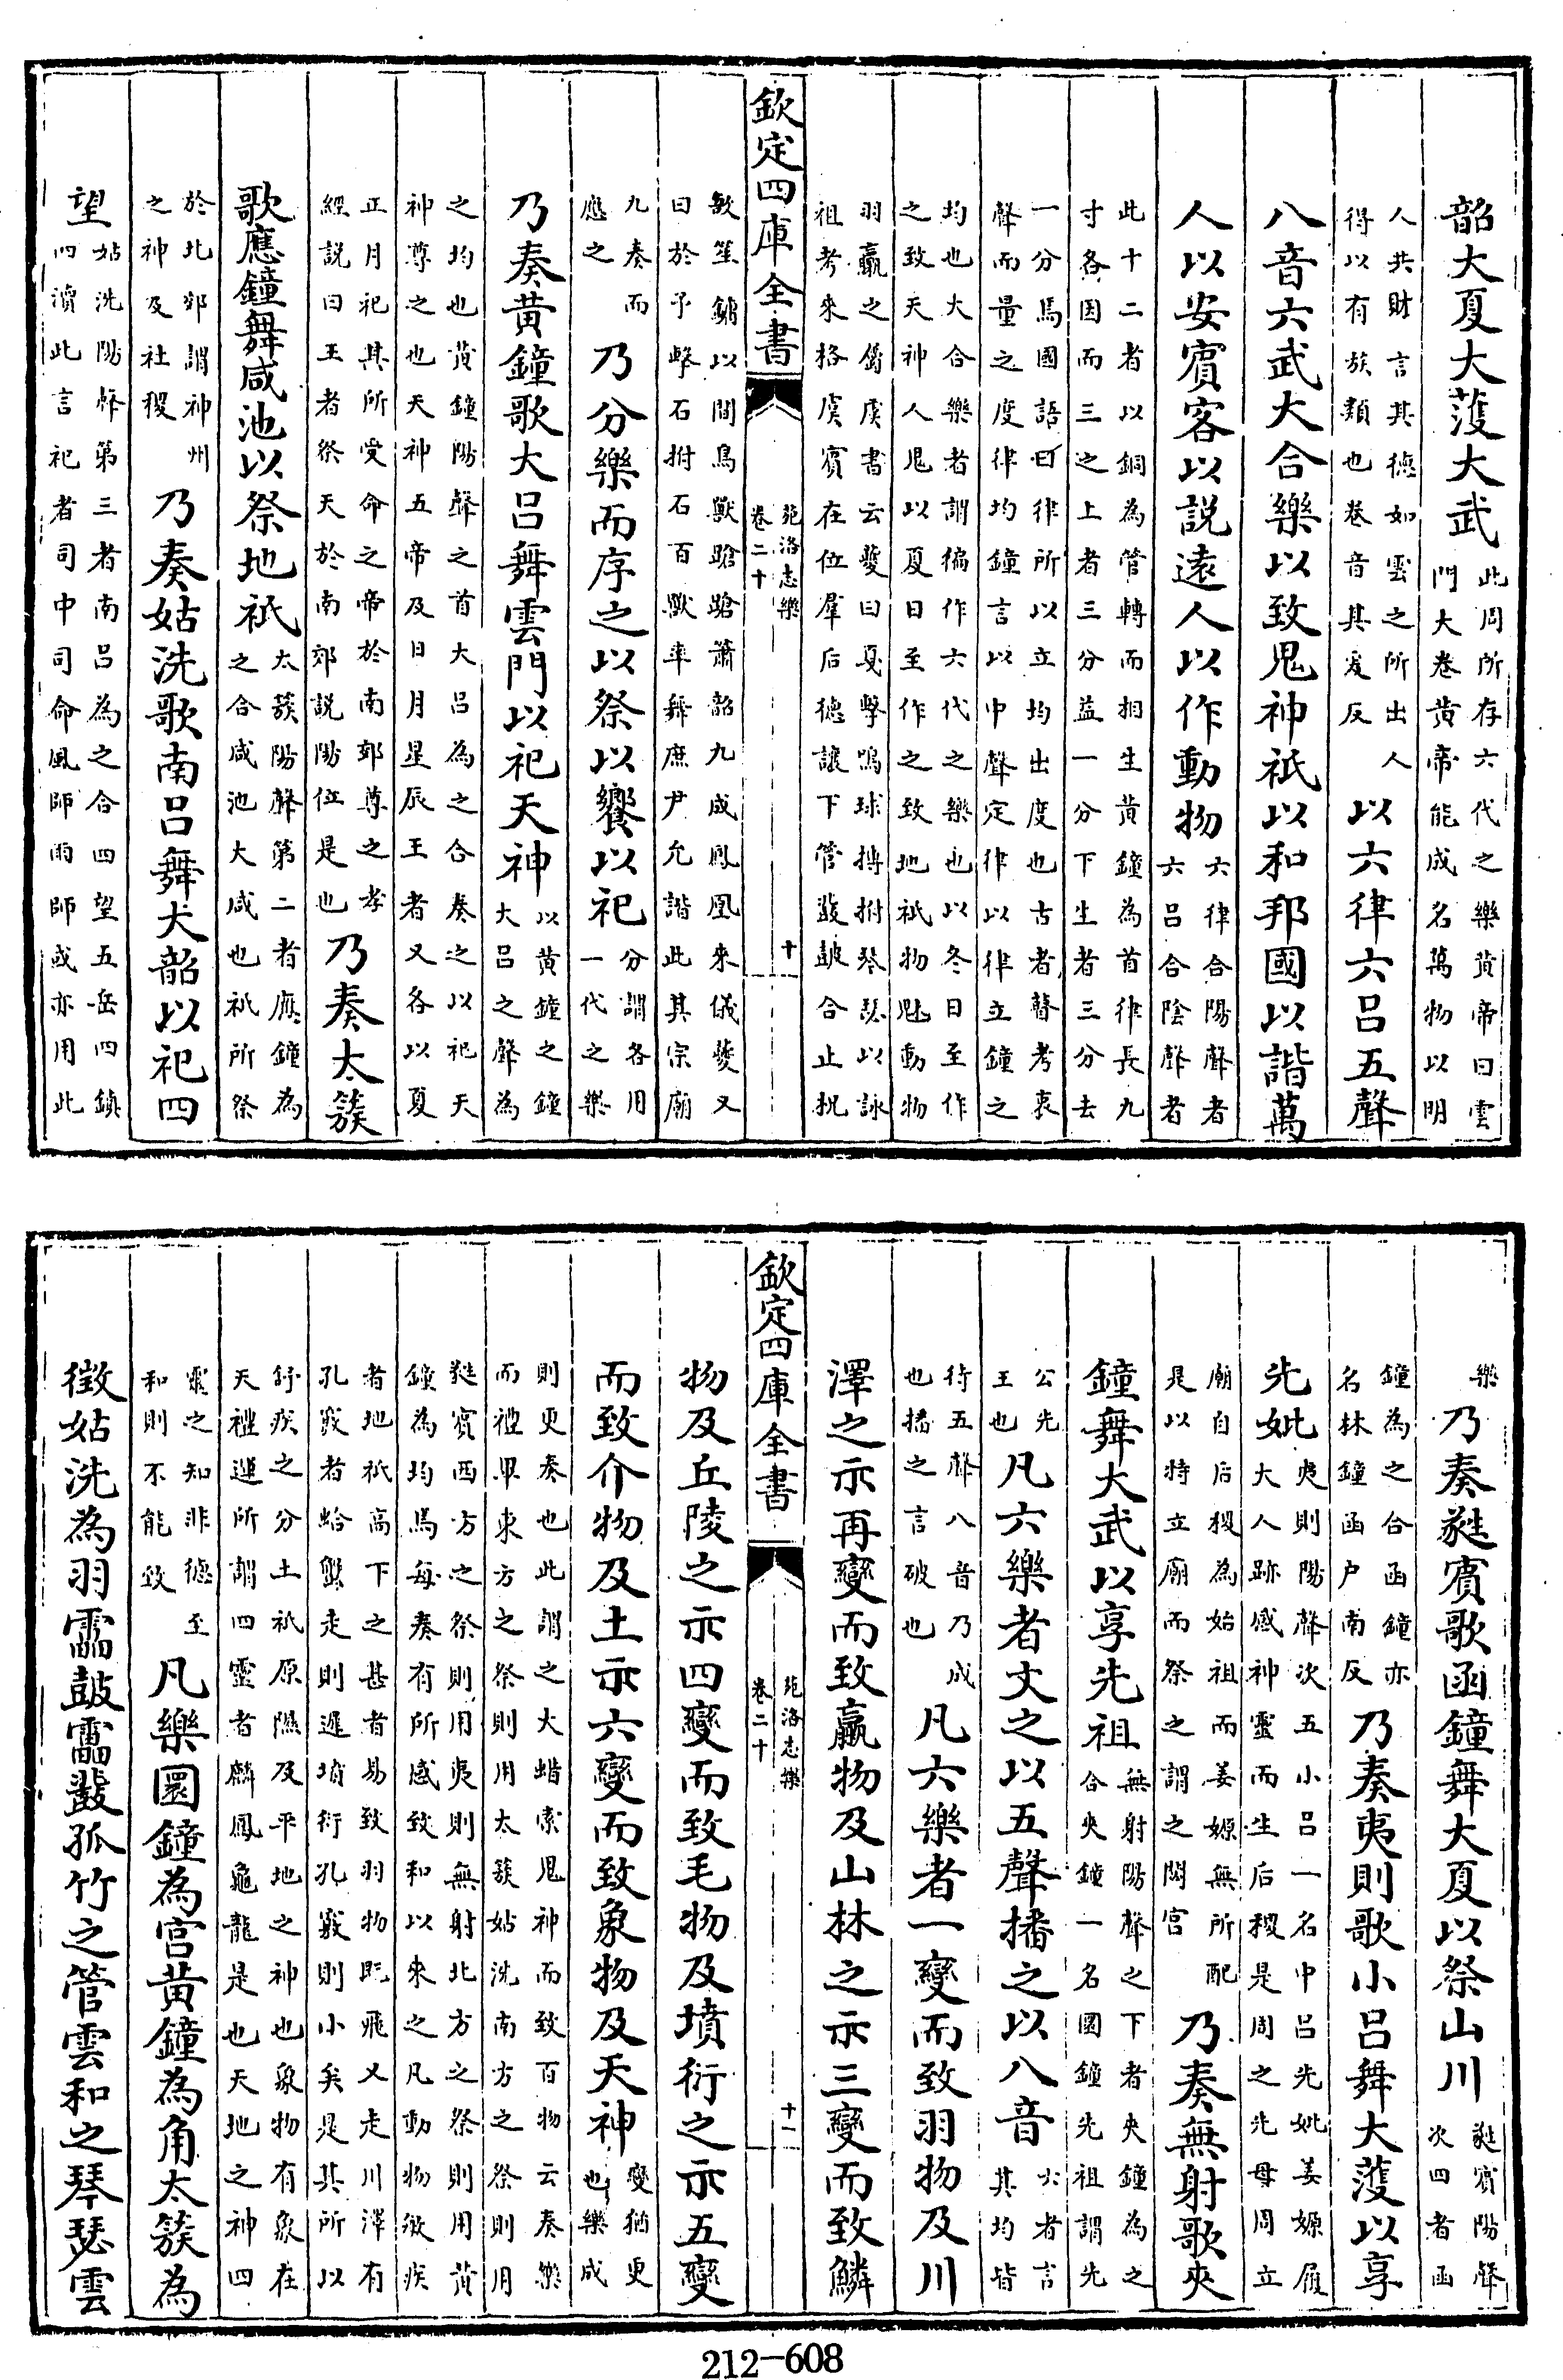 韶大夏大濩大武此周所存六代之樂黃帝曰雲門大卷黃帝能成名萬物以明
人共財言其德如雲之所出人得以有族類也卷音其爰反以六律六呂五聲
八音六武大合樂以致鬼神祇以和邦國以諧萬
人以安賓客以説遠人以作動物六律合陽聲者六呂合陰聲者
此十二者以銅為管轉而相生黃鐘為首律長九寸各因而三之上者三分益一分下生者三分去
一分馬國語曰律所以立均出度也古者瞽考衷聲而量之度律均鐘言以中聲定律以律立鐘之
均也大合樂者謂徧作六代之樂也以冬日至作之致天神人鬼以夏日至作之致地祇物鬽動物
羽臝之屬虞書云夔曰戛擊鳴球搏拊琴瑟以詠祖考來格虞賓在位羣后德讓下管鼗鼓合止柷
欽定四庫全書 苑洛志樂 卷二十 十
敔笙鏞以間鳥獸蹌蹌簫韶九成鳳凰來儀夔又曰於予擊石拊石百獸率舞庶尹允諧此其宗廟
九奏而應之乃分樂而序之以祭以饗以祀分謂各用一代之樂
乃奏黃鐘歌大呂舞雲門以祀天神以黃鐘之鐘大呂之聲為
之均也黃鐘陽聲之首大呂為之合奏之以祀天神尊之也天神五帝及日月星辰王者又各以夏
正月祀其所受命之帝於南郊尊之孝經説曰王者祭天於南郊説陽位是也乃奏太簇
歌應鐘舞咸池以祭地祇太蔟陽聲第二者應鐘為之合咸池大咸也祇所祭
於北郊謂神州之神及社稷乃奏姑洗歌南呂舞大韶以祀四
望姑洗陽聲第三者南呂為之合四望五岳四鎮四瀆此言祀者司中司命風師雨師或亦用此
樂乃奏蕤賓歌函鐘舞大夏以祭山川蕤賓陽聲次四者函
鐘為之合函鐘亦名林鐘函户南反乃奏夷則歌小呂舞大濩以享
先妣夷則陽聲次五小呂一名中呂先妣姜嫄履大人跡感神靈而生后稷是周之先母周立
廟自后稷為始祖而姜嫄無所配是以特立廟而祭之謂之閟宮乃奏無射歌夾
鐘舞大武以享先祖無射陽聲之下者夾鐘為之合夾鐘一名圜鐘先祖謂先
公先王也凡六樂者文之以五聲播之以八音六者言其均皆
待五聲八音乃成也播之言破也凡六樂者一變而致羽物及川
澤之示再變而致臝物及山林之示三變而致鱗
欽定四庫全書 苑洛志樂 卷二十 十一
物及丘陵之示四變而致毛物及墳衍之示五變
而致介物及土示六變而致象物及天神變猶更也樂成
則更奏也此謂之大蜡索鬼神而致百物云奏樂而禮畢東方之祭則用太簇姑洗南方之祭則用
蕤賓西方之祭則用夷則無射北方之祭則用黃鐘為均馬每奏有所感致和以來之凡動物敏疾
者地祇高下之甚者易致羽物既飛又走川澤有孔竅者蛤蟹走則遲墳衍孔竅則小矣是其所以
舒疾之分土祇原隰及平地之神也象物有象在天禮運所謂四靈者麟鳳龜龍是也天地之神四
靈之知非德至和則不能致凡樂圜鐘為宮黃鐘為角太簇為
徵姑洗為羽靁鼓靁鼗孤竹之管雲和之琴瑟雲
212-608